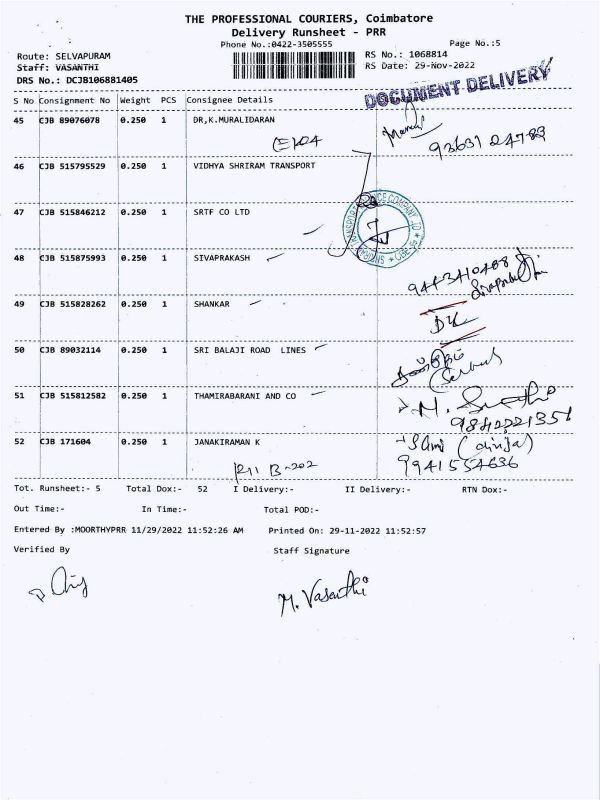 THE PROFESSIONAL COURIERS, Coimbatore
Delivery Runsheet - PRR
Phone No.:0422-3505555
Page No.:5
Route: SELVAPURAM
RS No.: 1068814
Staff: VASANTHI
RS Date: 29-Nov-2022
DRS No.: DCJB106881405
DOCUMENT DELIVERY
S No Consignment No Weight PCS Consignee Details
45 CJB 89076078 0.250 1 DR,K.MURALIDARAN
46 CJB 515795529 0.250 1 VIDHYA SHRIRAM TRANSPORT
47 CJB 515846212 0.250 1 SRTF CO LTD
48 CJB 515875993 0.250 1 SIVAPRAKASH
49 CJB 515828262 0.250 1 SHANKAR
50 CJB 89032114 0.250 1 SRI BALAJI ROAD LINES
51 CJB 515812582 0.250 1 THAMIRABARANI AND CO
9842221351
52 CJB 171604 0.250 1 JANAKIRAMAN K
9941554636
B-202
Tot. Runsheet:- 5 Total Dox:- 52 I Delivery:- II Delivery:- RTN Dox:-
Out Time:- In Time:- Total POD:-
Entered By :MOORTHYPRR 11/29/2022 11:52:26 AM Printed On: 29-11-2022 11:52:57
Verified By Staff Signature
M. Vasanthi